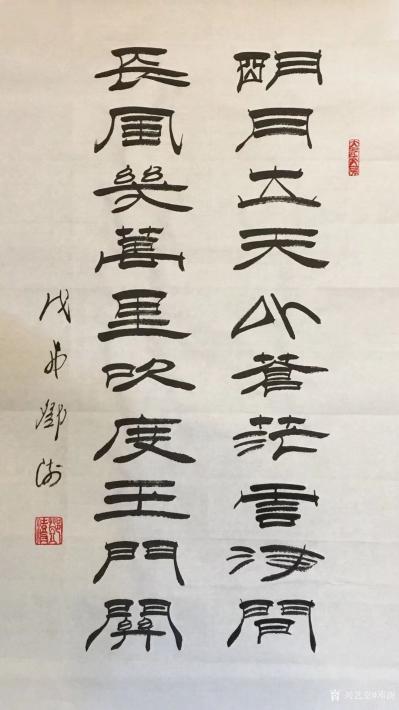 明月出天山蒼茫雲海間
長風幾萬里吹度玉門關
戊戌鄧